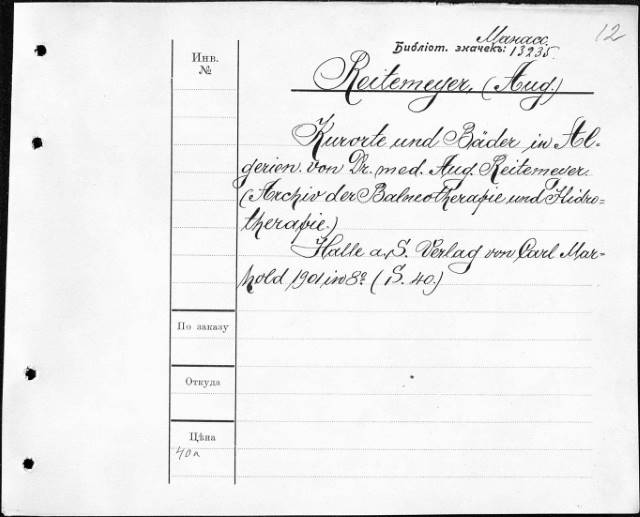 Манасс.
12
Библіот. значекъ: 13235.
Инв.
№
Reitemeyer, (Aug.)
Kurorte und Bäder in Al-
gerien. von Dr. med. Aug. Reitemeyer.
(Archiv der Balneotherapie und Hidro=
therapie.)
Halle a. S. Verlag von Carl Mar-
hold 1901 in 8º (S. 40.)
По заказу
Откуда
Цѣна
40